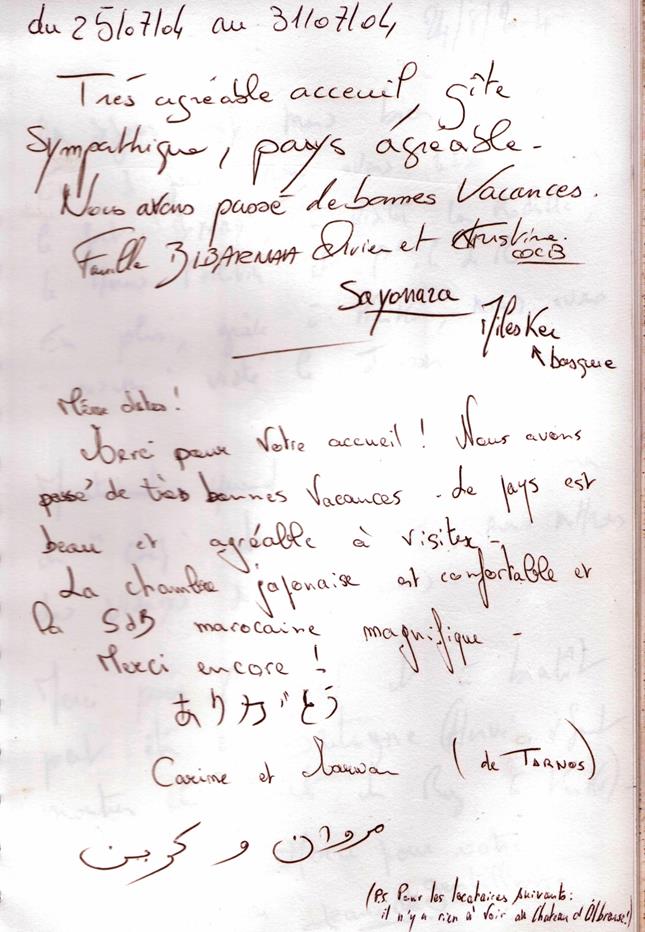 du 25/07/04 au 31/07/04
Trés agréable acceuil, gîte
Sympathique, pays agréable -
Nous avons passé de bonnes Vacances.
Famille Olivier et
Sayonara
Milesker
basque
Même dates!
Merci pour Votre accueil ! Nous avons
passé de très bonnes Vacances - Le pays est
beau et agréable à visiter -
La chambre japonaise est confortable et
la SdB marocaine magnifique -
Merci encore !
ありがとう
Carine et Marwan (de TARNOS)
مروان و كرين
(P.S. Pour les locataires suivants :
il n'y a rien à voir au Chateau d'Olbreuse!)